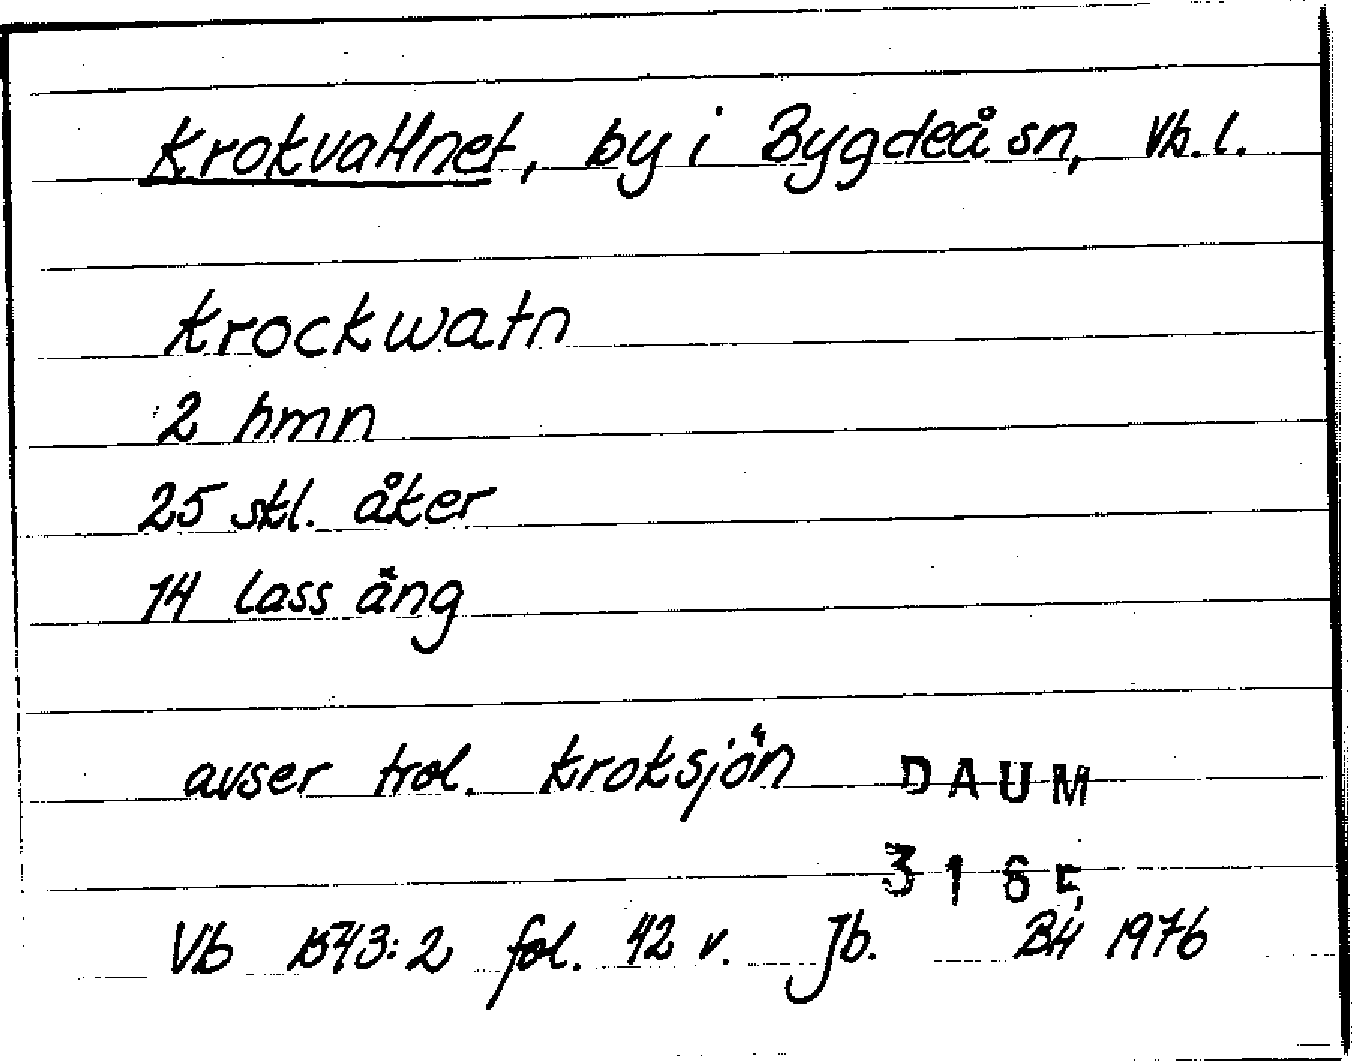 Krokvattnet, by i Bygdeå sn, Vb. l.
Krockwatn
2 hmn
25 skl. åker
14 lass äng
avser trol. Kroksjön DAUM
3165
Vb 1543:2 fol. 42 v. Jb. BH 1976